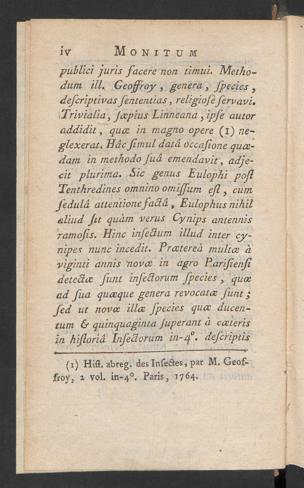 iv MONITUM
publici juris facere non timui. Metho-
dum ill. Geoffroy, genera, ſpecies,
deſcriptivas ſententias, religioſè ſervavi.
Trivialia, ſæpius Linneana, ipſe autor
addidit, quæ in magno opere (1) ne-
glexerat. Hâc ſimul datâ occaſione quæ-
dam in methodo ſuâ emendavit, adje-
cit plurima. Sic genus Eulophi poſt
Tenthredines omnino omiſſum eſt, cum
ſedulâ attentione factâ, Eulophus nihil
aliud ſit quàm verus Cynips antennis
ramoſis. Hinc inſectum illud inter cy-
nipes nunc incedit. Prætereà multæ à
viginti annis novæ in agro Pariſienſi
detectæ ſunt inſectorum ſpecies, quæ
ad ſua quæque genera revocatæ ſunt;
ſed ut novæ illæ ſpecies quæ ducen-
tum & quinquaginta ſuperant à cæteris
in hiſtoriâ Inſectorum in-4°. deſcriptis
(1) Hiſt. abreg. des Inſectes, par M. Geof-
froy, 2 vol. in-4°. Paris, 1764.